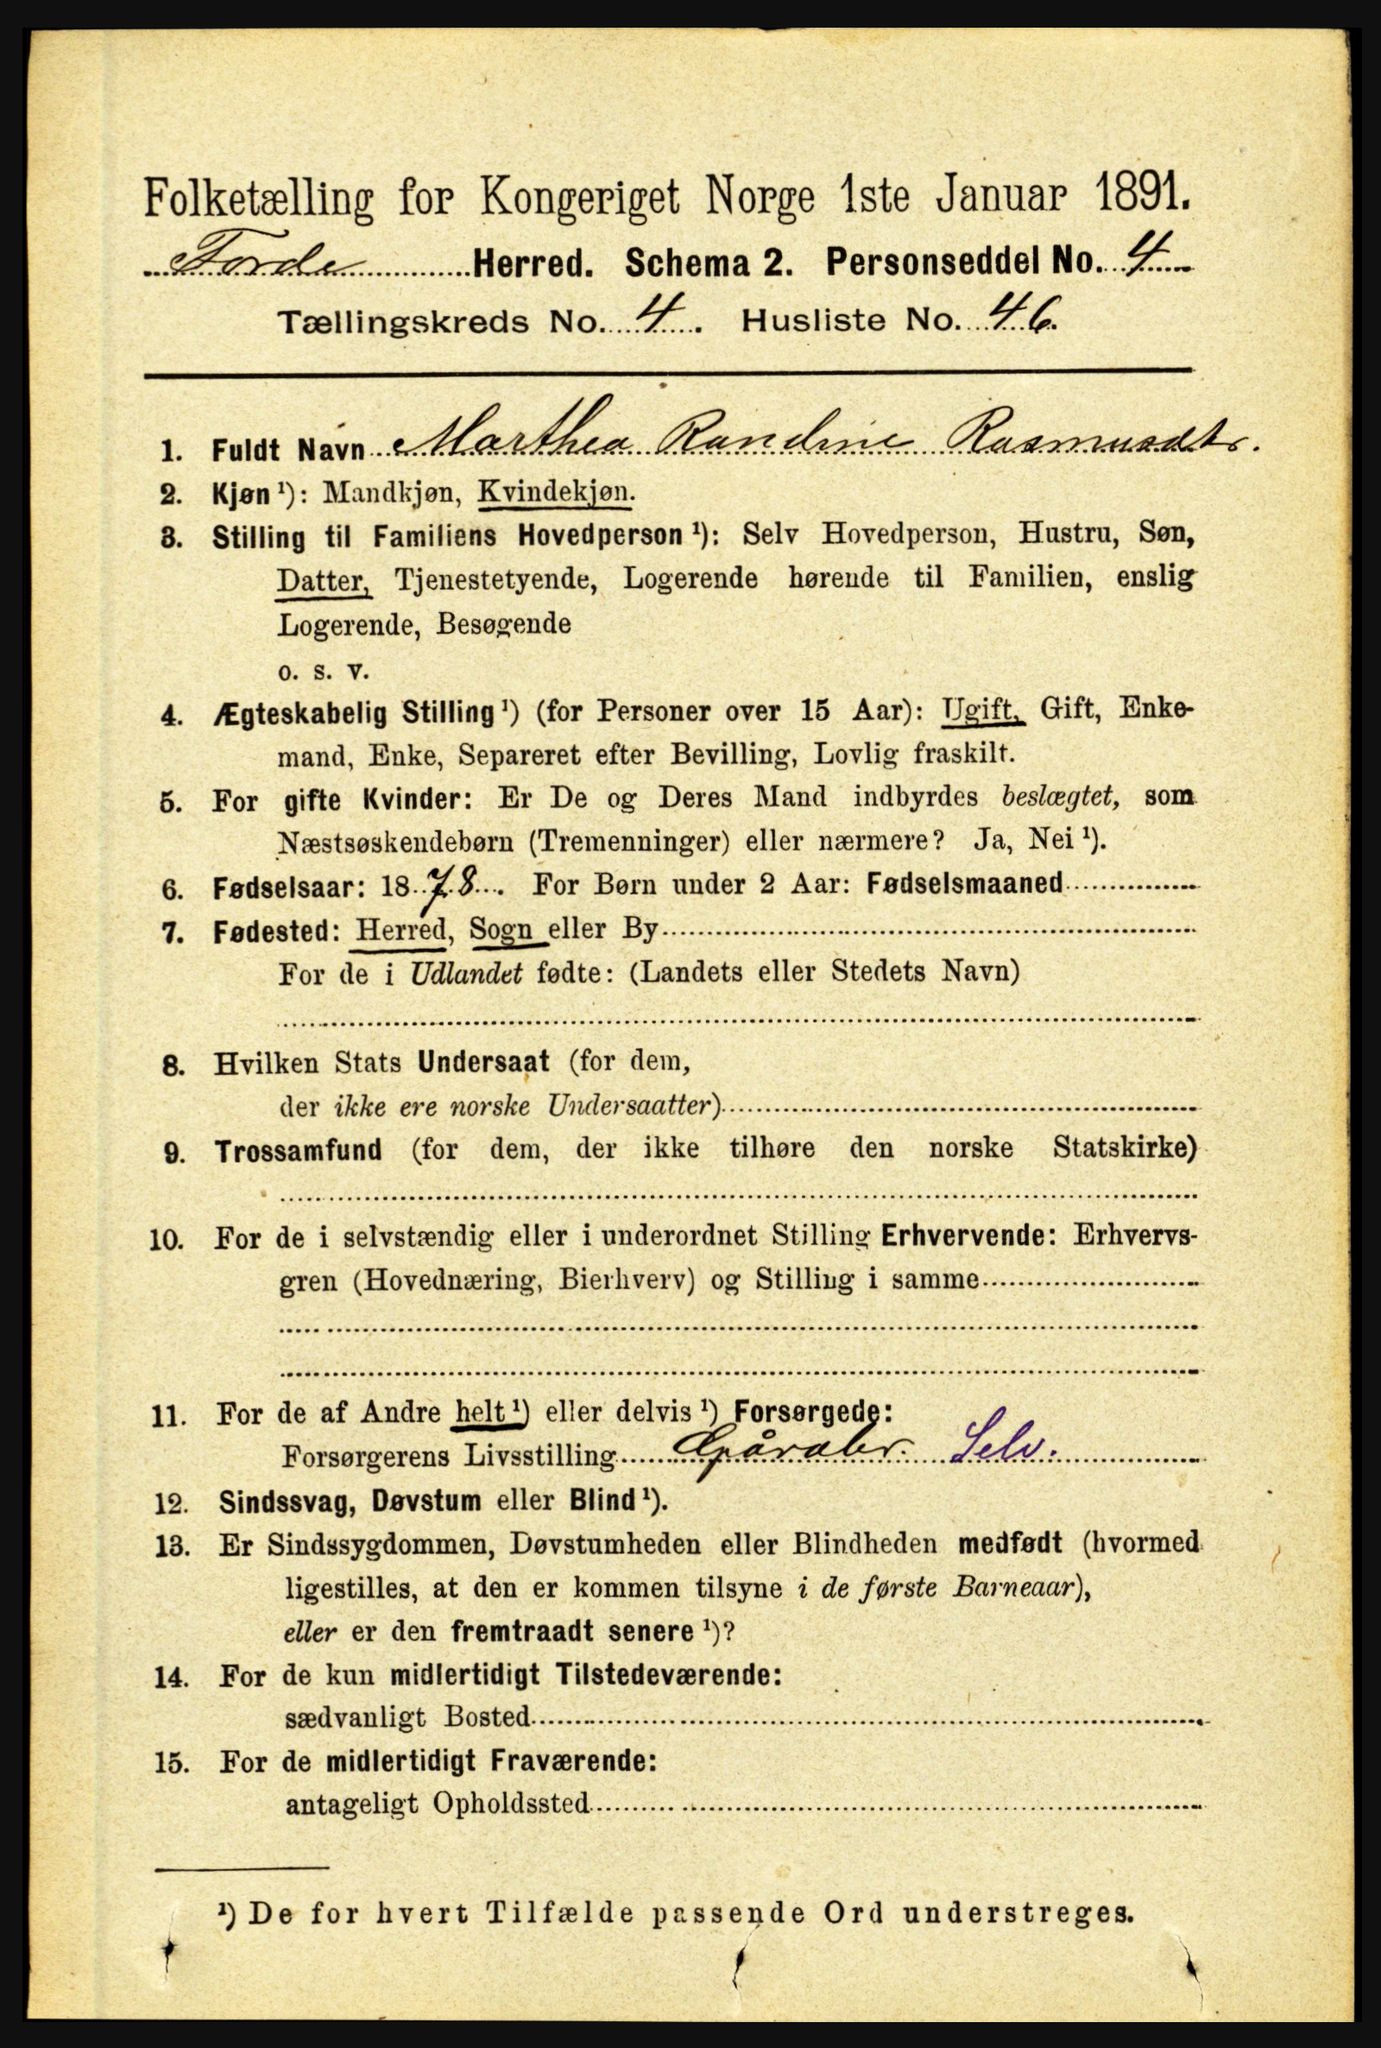 Folketælling for Kongeriget Norge 1ste Januar 1891.
Førde Herred. Schema 2. Personseddel No. 4
Tællingskreds No. 4. Husliste No. 46.
1. Fuldt Navn Marthea Randine Rasmusdtr.
2. Kjøn ¹): Mandkjøn, Kvindekjøn.
3. Stilling til Familiens Hovedperson ¹): Selv Hovedperson, Hustru, Søn,
Datter, Tjenestetyende, Logerende hørende til Familien, enslig
Logerende, Besøgende
o. s. v.
4. Ægteskabelig Stilling ¹) (for Personer over 15 Aar): Ugift, Gift, Enke-
mand, Enke, Separeret efter Bevilling, Lovlig fraskilt.
5. For gifte Kvinder: Er De og Deres Mand indbyrdes beslægtet, som
Næstsøskendebørn (Tremenninger) eller nærmere? Ja, Nei ¹).
6. Fødselsaar: 1878. For Børn under 2 Aar: Fødselsmaaned
7. Fødested: Herred, Sogn eller By
For de i Udlandet fødte: (Landets eller Stedets Navn)
8. Hvilken Stats Undersaat (for dem,
der ikke ere norske Undersaatter)
9. Trossamfund (for dem, der ikke tilhøre den norske Statskirke)
10. For de i selvstændig eller i underordnet Stilling Erhvervende: Erhvervs-
gren (Hovednæring, Bierhverv) og Stilling i samme
11. For de af Andre helt ¹) eller delvis ¹) Forsørgede:
Forsørgerens Livsstilling Gårdbr. Selv.
12. Sindssvag, Døvstum eller Blind ¹).
13. Er Sindssygdommen, Døvstumheden eller Blindheden medfødt (hvormed
ligestilles, at den er kommen tilsyne i de første Barneaar),
eller er den fremtraadt senere ¹)?
14. For de kun midlertidigt Tilstedeværende:
sædvanligt Bosted
15. For de midlertidigt Fraværende:
antageligt Opholdssted
¹) De for hvert Tilfælde passende Ord understreges.